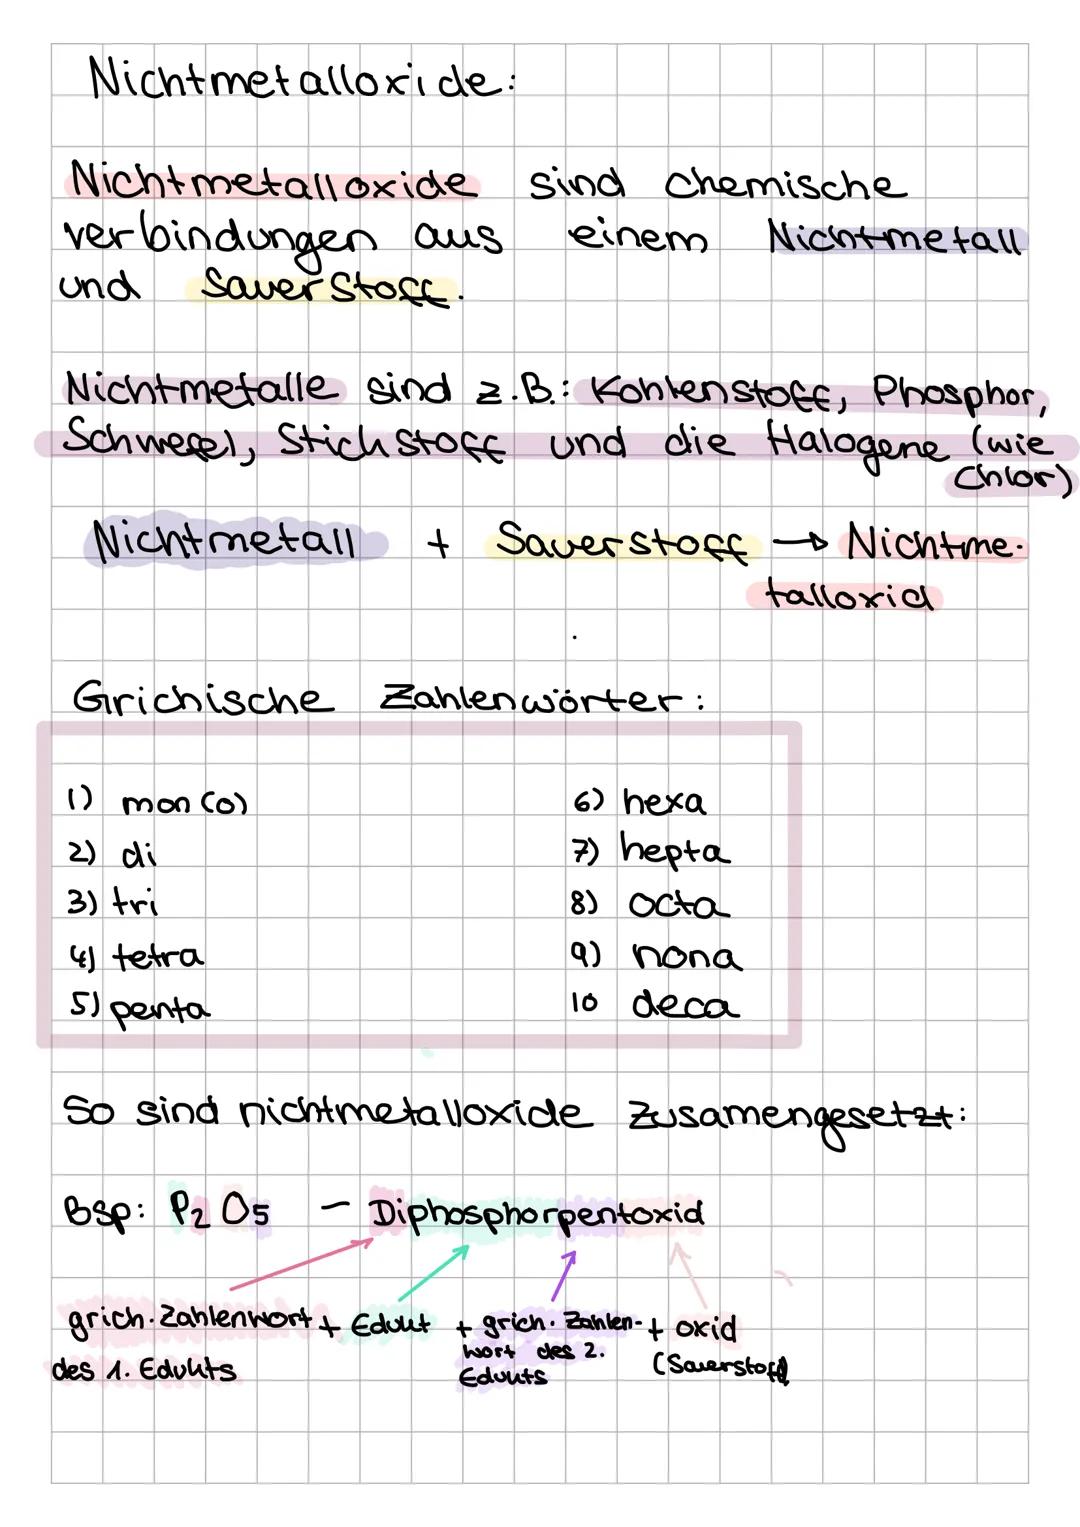 Nichtmetalloxide:
Nichtmetalloxide sind chemische
verbindungen aus einem Nichtmetall
und Sauerstoff.
Nichtmetalle sind z.B.: Kohlenstoff, Phosphor,
Schwefel, Stickstoff und die Halogene (wie
Chlor)
Nichtmetall + Sauerstoff → Nichtme-
talloxid
Grichische Zahlenwörter:
1) mon(o)
2) di
3) tri
4) tetra
5) penta
6) hexa
7) hepta
8) octa
9) nona
10 deca
So sind nichtmetalloxide zusamengesetzt:
Bsp: P2O5 – Diphosphorpentoxid
grich. Zahlenwort
des 1. Edukts
+ Edukt
+ grich. Zahlen-
wort des 2.
Edukts
+ oxid
(Sauerstoff)